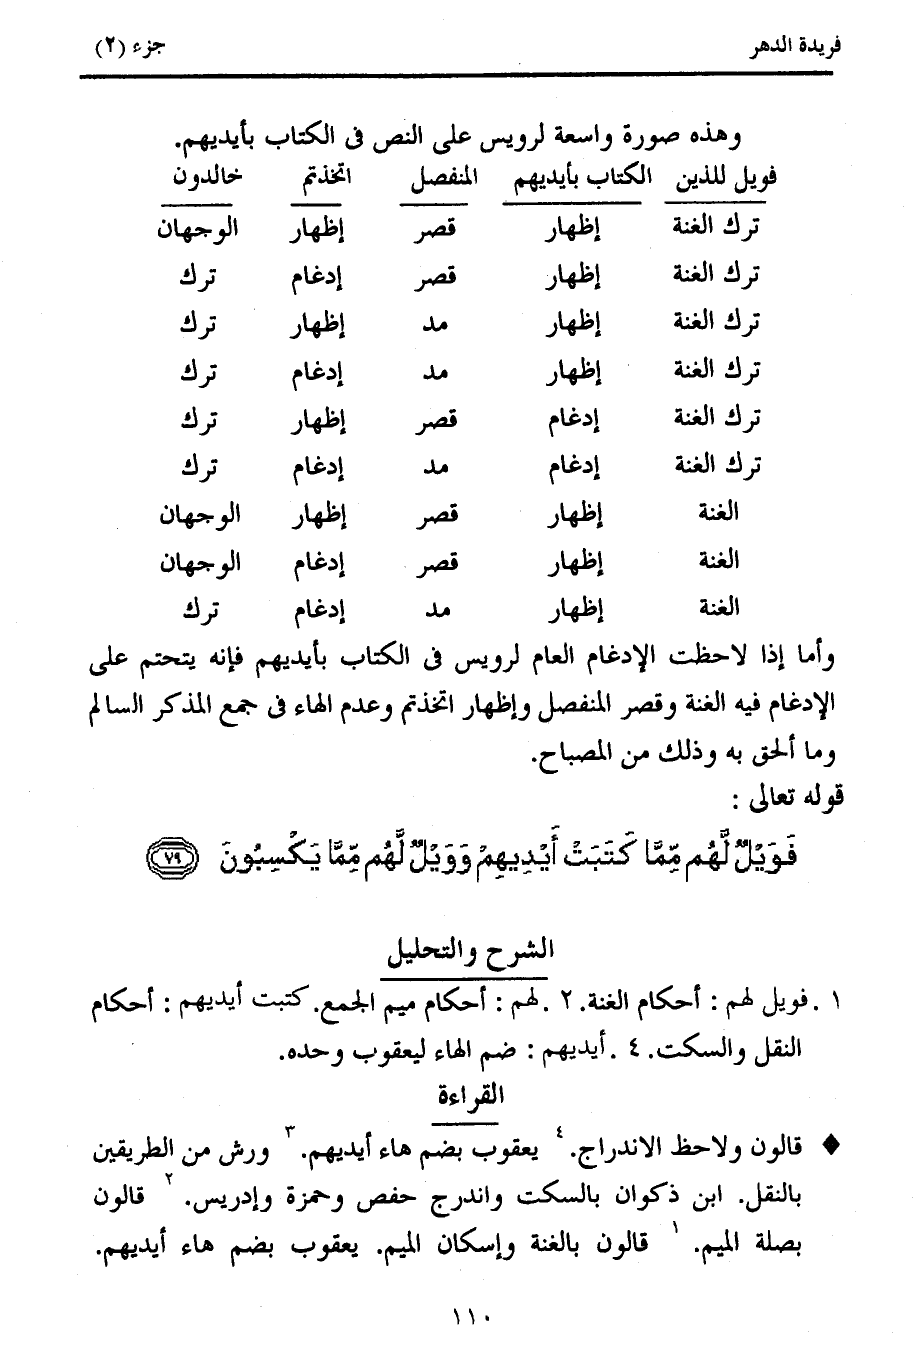 فريدة الدهر جزء (٢)
وهذه صورة واسعة لرويس على النص فى الكتاب بأيديهم.
فويل للذين الكتاب بأيديهم المنفصل اتخذتم خالدون
ترك الغنة إظهار قصر إظهار الوجهان
ترك الغنة إظهار قصر إدغام ترك
ترك الغنة إظهار مد إظهار ترك
ترك الغنة إظهار مد إدغام ترك
ترك الغنة إدغام قصر إظهار ترك
ترك الغنة إدغام مد إدغام ترك
الغنة إظهار قصر إظهار الوجهان
الغنة إظهار قصر إدغام الوجهان
الغنة إظهار مد إدغام ترك
وأما إذا لاحظت الإدغام العام لرويس فى الكتاب بأيديهم فإنه يتحتم على
الإدغام فيه الغنة وقصر المنفصل وإظهار اتخذتم وعدم الهاء فى جمع المذكر السالم
وما ألحق به وذلك من المصباح.
قوله تعالى :
فَوَيْلٌ لَّهُم مِّمَّا كَتَبَتْ أَيْدِيهِمْ وَوَيْلٌ لَّهُم مِّمَّا يَكْسِبُونَ ٧٩
الشرح والتحليل
١ .فويل لهم : أحكام الغنة. ٢ .لهم : أحكام ميم الجمع. كتبت أيديهم : أحكام
النقل والسكت. ٤ .أيديهم : ضم الهاء ليعقوب وحده.
القراءة
♦ قالون ولاحظ الاندراج. ٤ يعقوب بضم هاء أيديهم. ٣ ورش من الطريقين
بالنقل. ابن ذكوان بالسكت واندرج حفص وحمزة وإدريس. ٢ قالون
بصلة الميم. ١ قالون بالغنة وإسكان الميم. يعقوب بضم هاء أيديهم.
١١٠